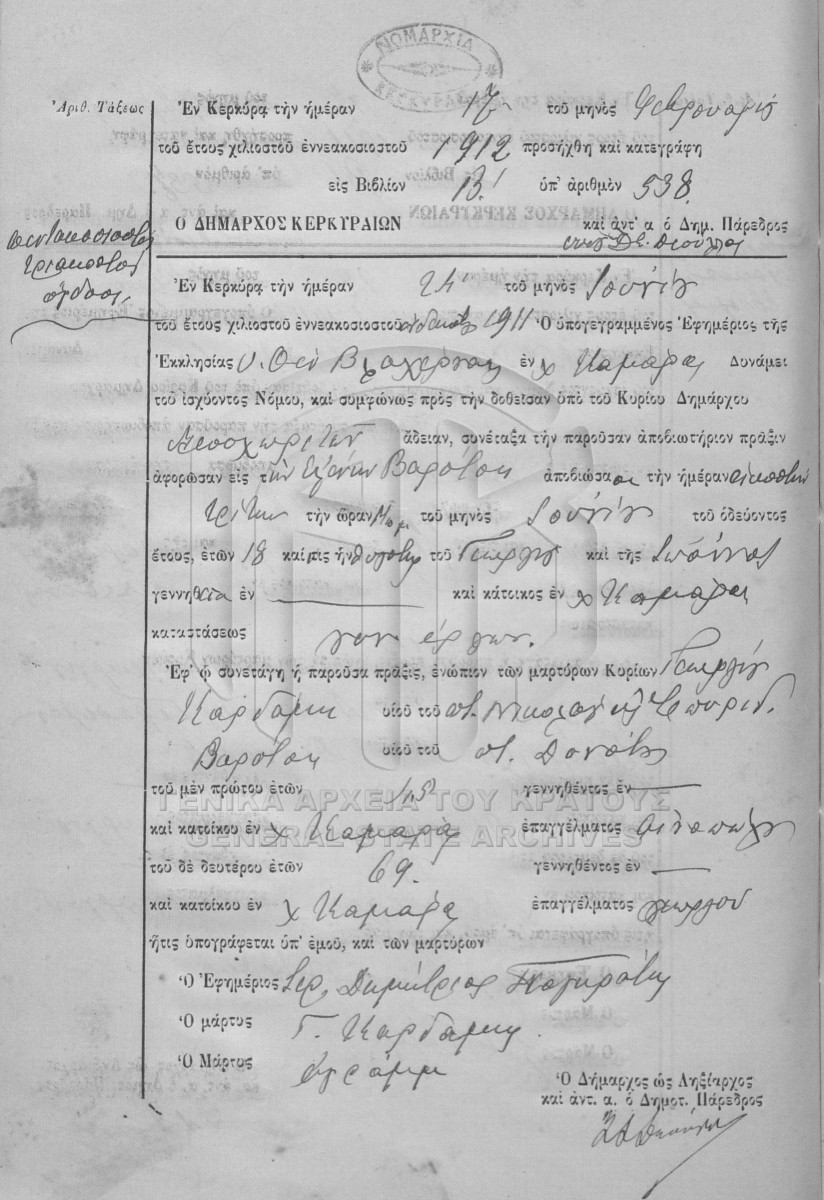 ΝΟΜΑΡΧΙΑ
ΚΕΡΚΥΡΑΣ
Ἀριθ. Τάξεως
Ἐν Κερκύρᾳ τὴν ἡμέραν 17 τοῦ μηνὸς Φεβρουαρίου
τοῦ ἔτους χιλιοστοῦ ἐννεακοσιοστοῦ 1912 προσήχθη καὶ κατεγράφη
εἰς Βιβλίον Β' ὑπ' ἀριθμὸν 538
Ο ΔΗΜΑΡΧΟΣ ΚΕΡΚΥΡΑΙΩΝ καὶ ἀντ' α ὁ Δημ. Πάρεδρος
πεντακοσιοστὸν
τριακοστὸν
ὄγδοον
Ἐν Κερκύρᾳ τὴν ἡμέραν 24 τοῦ μηνὸς Ἰουνίου
τοῦ ἔτους χιλιοστοῦ ἐννεακοσιοστοῦ ἑνδεκάτου 1911 Ὁ ὑπογεγραμμένος Ἐφημέριος τῆς
Ἐκκλησίας Υ. Θου Βλαχέρνας ἐν χ Καμάρας Δυνάμει
τοῦ ἰσχύοντος Νόμου, καὶ συμφώνως πρὸς τὴν δοθεῖσαν ὑπὸ τοῦ Κυρίου Δημάρχου
ἄδειαν, συνέταξα τὴν παροῦσαν ἀποβιωτήριον πρᾶξιν
ἀφορῶσαν εἰς τὴν Ἑλένην Βαρότση ἀποβιώσασα τὴν ἡμέραν εἰκοστὴν
τρίτην τὴν ὥραν τοῦ μηνὸς Ἰουνίου τοῦ ὁδεύοντος
ἔτους, ἐτῶν 18 καὶ τις ἦν θυγάτηρ τοῦ Γεωργίου καὶ τῆς Ἰωάννας
γεννηθεῖσα ἐν — καὶ κάτοικος ἐν χ Καμάρας
καταστάσεως
Ἐφ' ᾧ συνετάγη ἡ παροῦσα πρᾶξις, ἐνώπιον τῶν μαρτύρων Κυρίων Γεωργίου
Καρδάμη υἱοῦ τοῦ ποτ. Νικολάου καὶ Σπυρίδ.
Βαρότση υἱοῦ τοῦ ποτ. Δονάτου
τοῦ μὲν πρώτου ἐτῶν 45 γεννηθέντος ἐν —
καὶ κατοίκου ἐν χ Καμάρα ἐπαγγέλματος οἰνοπώλου
τοῦ δὲ δευτέρου ἐτῶν 69. γεννηθέντος ἐν —
καὶ κατοίκου ἐν χ Καμάρα ἐπαγγέλματος γεωργοῦ
ἥτις ὑπογράφεται ὑπ' ἐμοῦ, καὶ τῶν μαρτύρων
Ὁ Ἐφημέριος Ἱερ. Δημήτριος
Ὁ μάρτυς Γ. Καρδάμης
Ὁ Μάρτυς ἀγράμμ
Ὁ Δήμαρχος ὡς Ληξίαρχος
καὶ ἀντ. α. ὁ Δημοτ. Πάρεδρος
ΓΕΝΙΚΑ ΑΡΧΕΙΑ ΤΟΥ ΚΡΑΤΟΥΣ
GENERAL STATE ARCHIVES